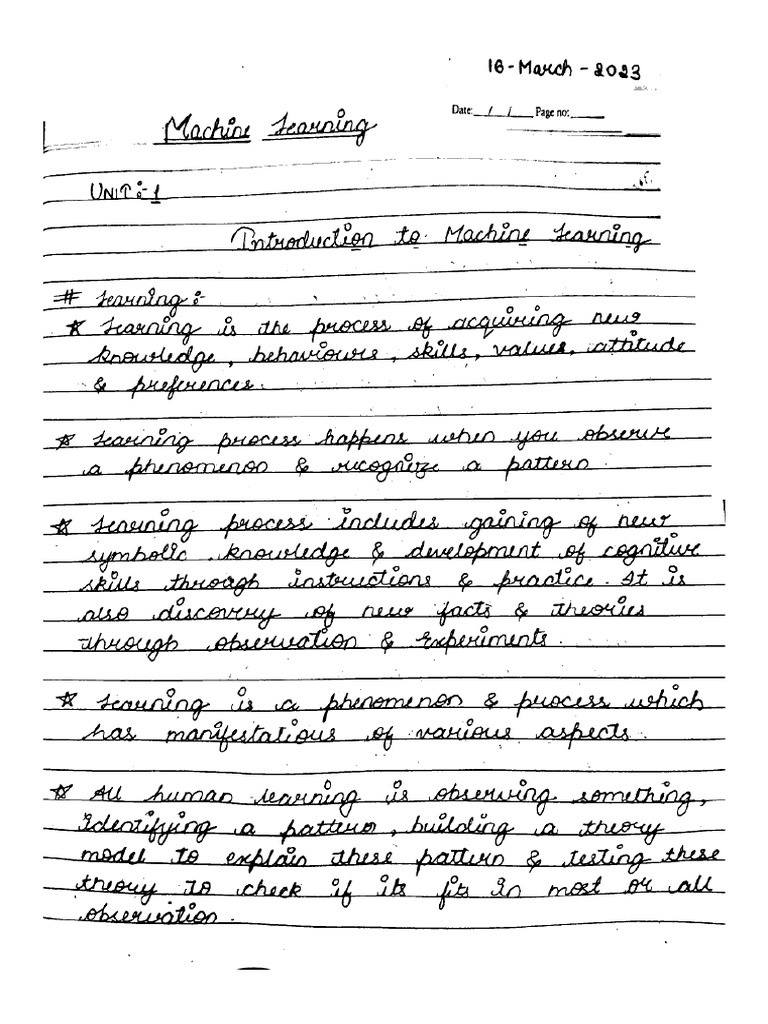 16-March-2023
Date: / / Page no:
Machine Learning
UNIT:-1
Introduction to Machine Learning
# Learning:-
★ Learning is the process of acquiring new
knowledge, behaviours, skills, values, attitude
& preferences.
★ Learning process happens when you observe
a phenomenon & recognize a pattern.
★ Learning process includes gaining of new
symbolic knowledge & development of cognitive
skills through instructions & practice. It is
also discovery of new facts & theories
through observation & experiments.
★ Learning is a phenomenon & process which
has manifestations of various aspects.
★ All human learning is observing something,
Identifying a pattern, building a theory
model to explain these pattern & testing these
theory to check if its fits in most or all
observation.